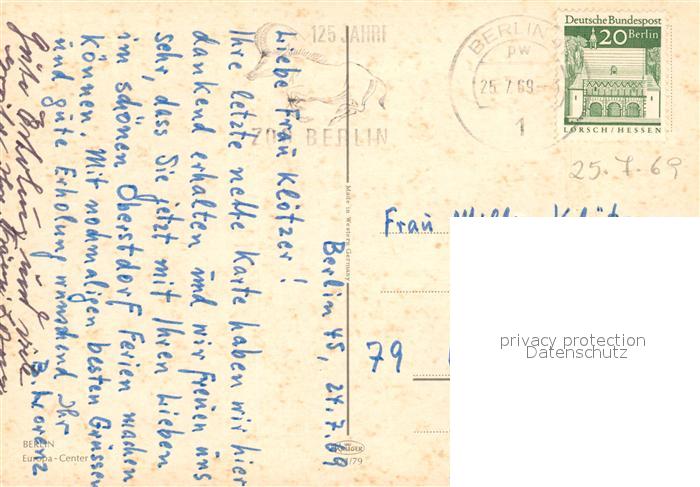 125 JAHRE
ZOO BERLIN
BERLIN
PW
25.7.69
1
Deutsche Bundespost
20 Berlin
LORSCH/HESSEN
25.7.69
Berlin 45, 24.7.69
Liebe Frau Klötzer!
Ihre letzte nette Karte haben wir hier
dankend erhalten und wir freuen uns
sehr, dass Sie jetzt mit Ihren Lieben
im schönen Oberstdorf Ferien machen
können. Mit nochmaligen besten Grüssen
und gute Erholung wünschend Ihr
B. Lorenz
Gute Erholung und viele
Made in Western Germany
Frau
79
privacy protection
Datenschutz
BERLIN
Europa-Center
KRÜGER
/79